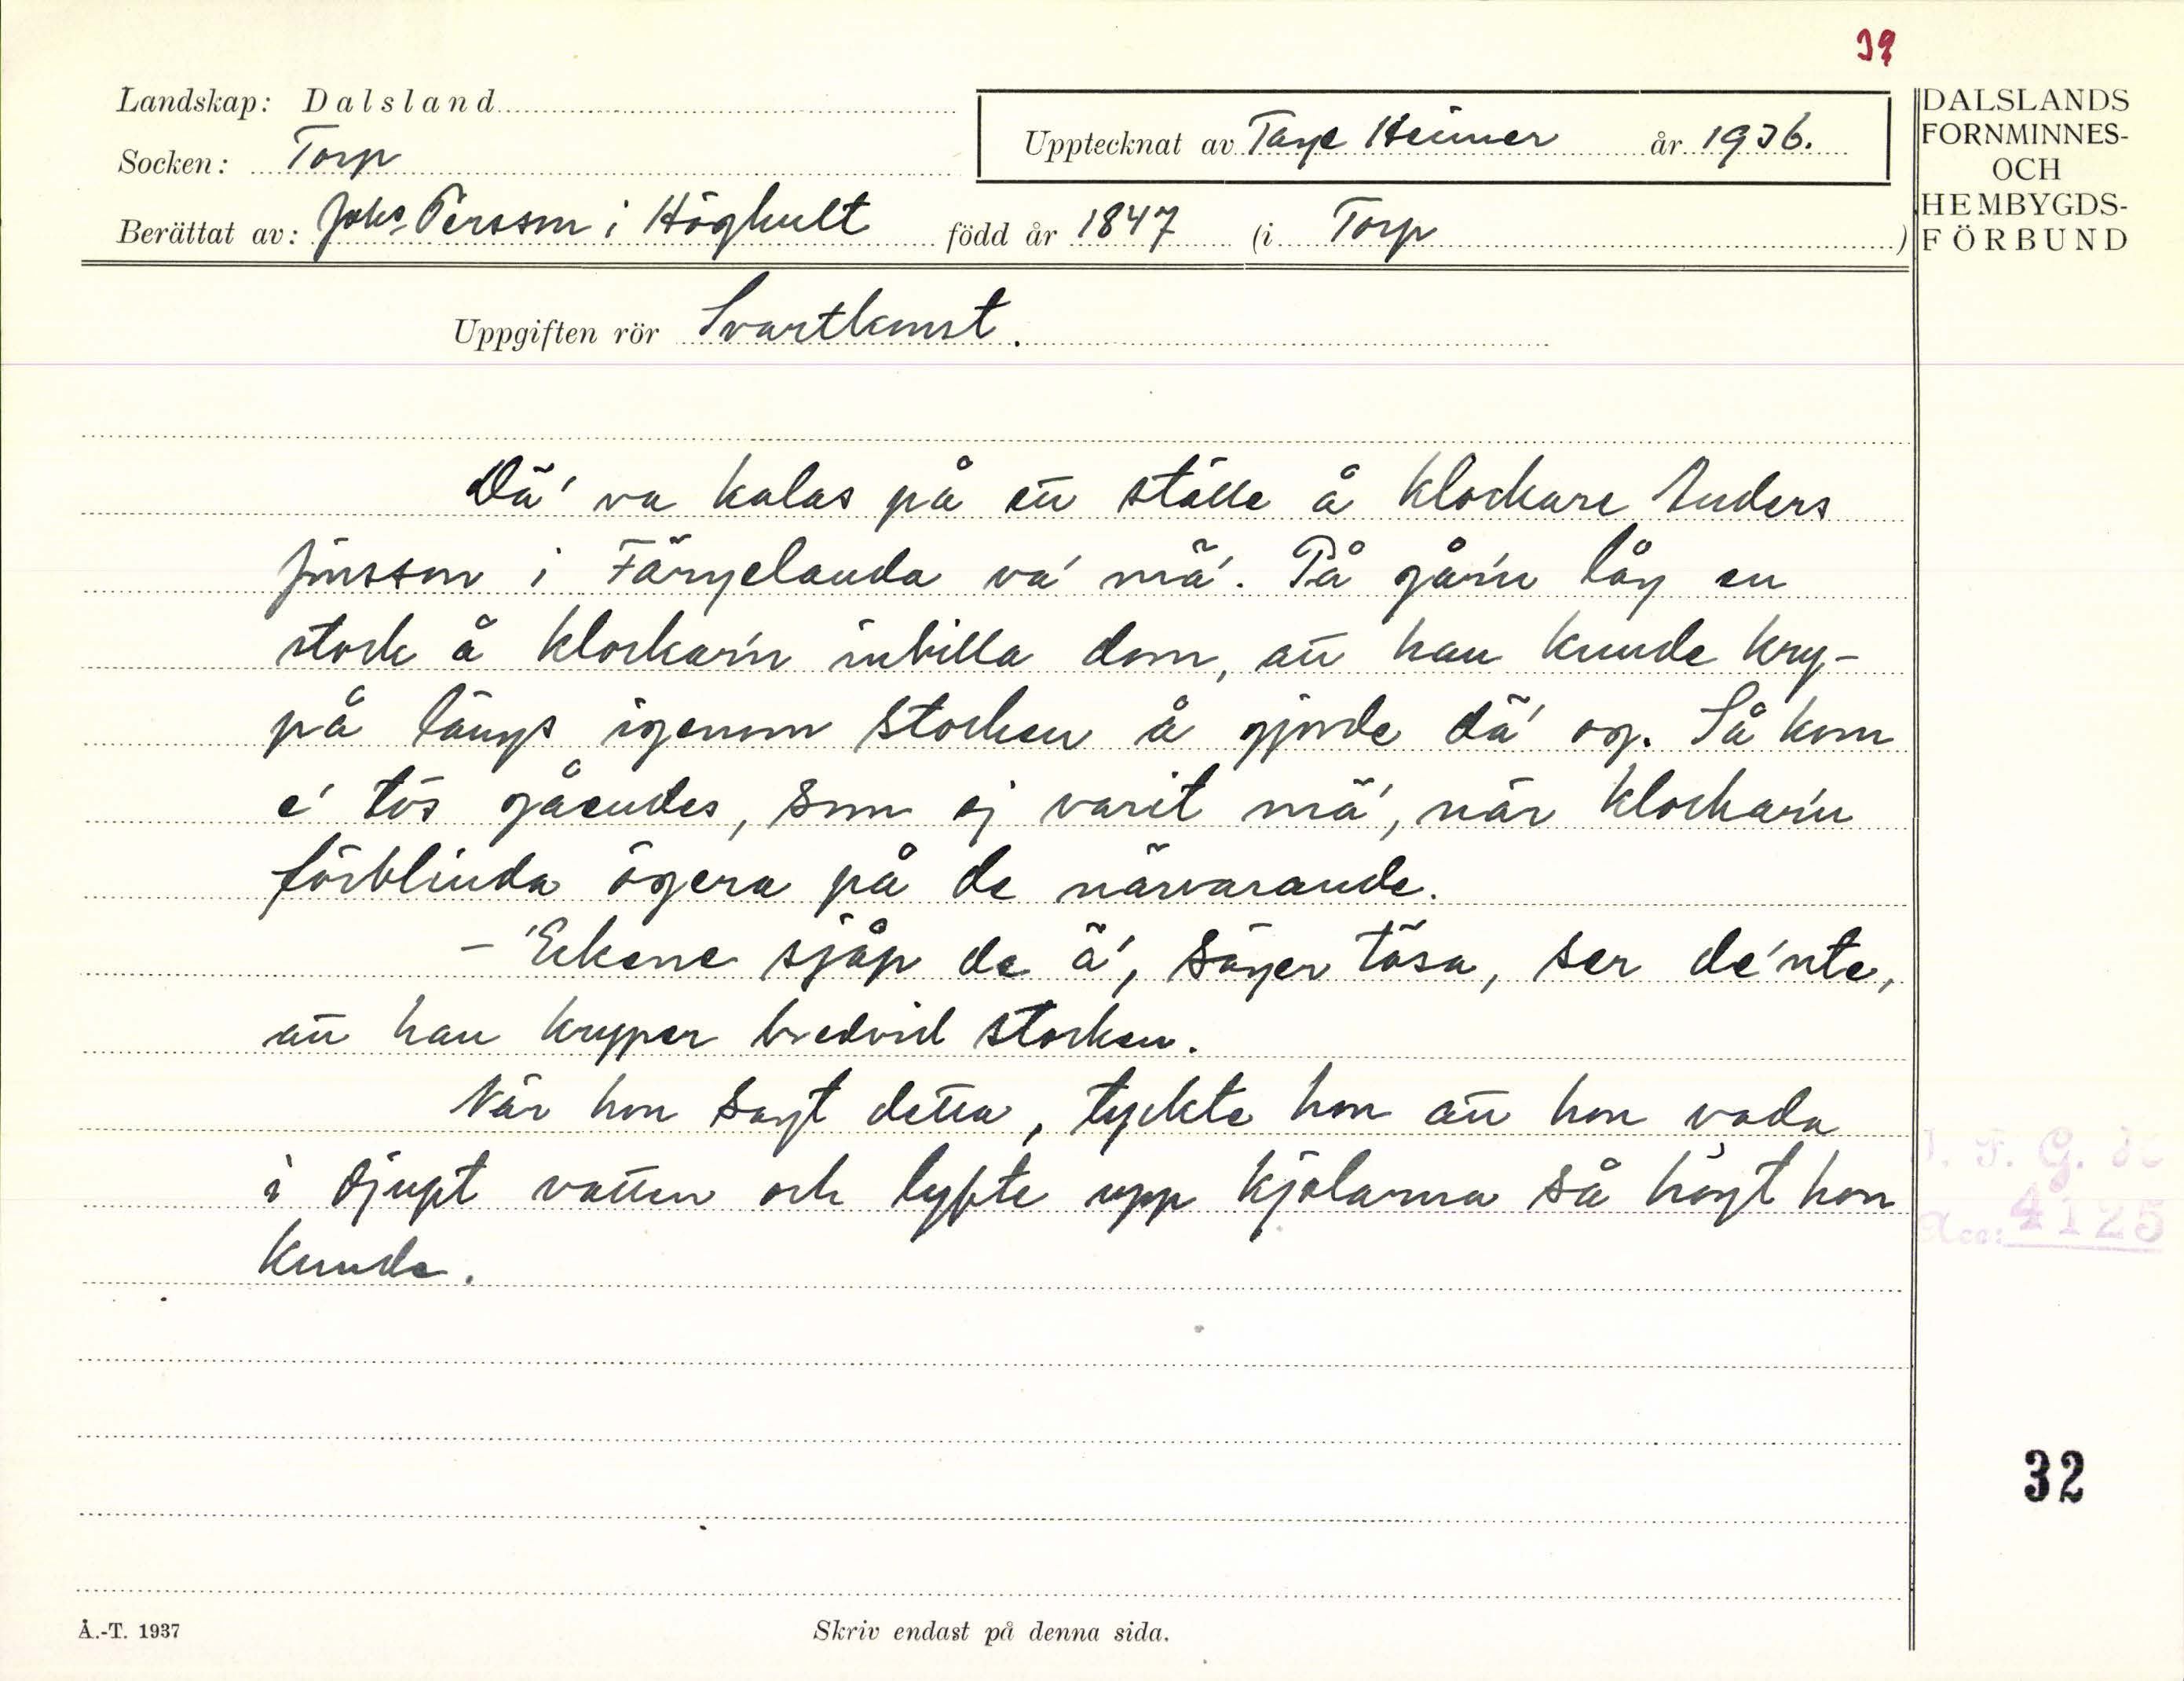 39
Landskap: Dalsland
Socken: Torp
Upptecknat av Tage Heimer år 1936.
Berättat av: Johs. Persson i Höghult född år 1847 (i Torp)
DALSLANDS
FORNMINNES-
OCH
HEMBYGDS-
FÖRBUND
Uppgiften rör Svartkonst.
Dä' va kalas på ett ställe å klockare Anders
Jönsson i Färgelanda va' mä'. På går'n låg en
stock å klockar'n inbilla dom, att han kunde kry-
på längs igenom stocken å gjorde dä' og. Så kom
e' tös gåendes, som ej varit mä', när klockar'n
förblinda ögera på de närvarande.
- 'Ekene sjåp de ä', säger tösa, ser de'nte,
att han kryper bredvid stocken.
När hon sagt detta, tyckte hon att hon vada
i djupt vatten och lyfte upp kjolarna så högt hon
kunde.
I. F. G. ds
Acc: 4125
32
Å.-T. 1937
Skriv endast på denna sida.